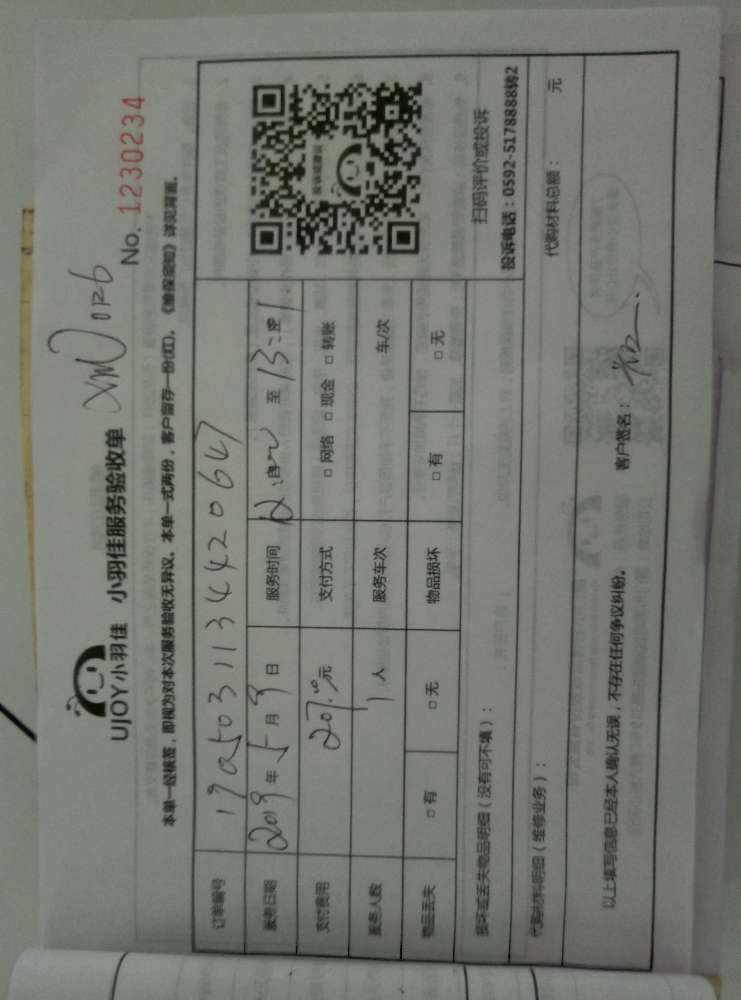 UJOY小羽佳 小羽佳服务验收单
No. 1230234
本单一经核签，即视为对本次服务验收无异议。本单一式两份，客户留存一份(红)。《维保须知》详见背面。
订单编号
服务日期 2019年5月9日 服务时间 至
支付费用 元 支付方式 □ 网络 □ 现金 □ 转账
服务人数 1 人 服务车次 车/次
物品丢失 □ 有 □ 无 物品损坏 □ 有 □ 无
投诉或建议
扫码评价或投诉
投诉电话：0592-5178888转2
损坏或丢失物品明细（没有可不填）：
代购材料明细（维修业务）： 代购材料总额： 元
以上填写信息已经本人确认无误，不存在任何争议纠纷。 客户签名：